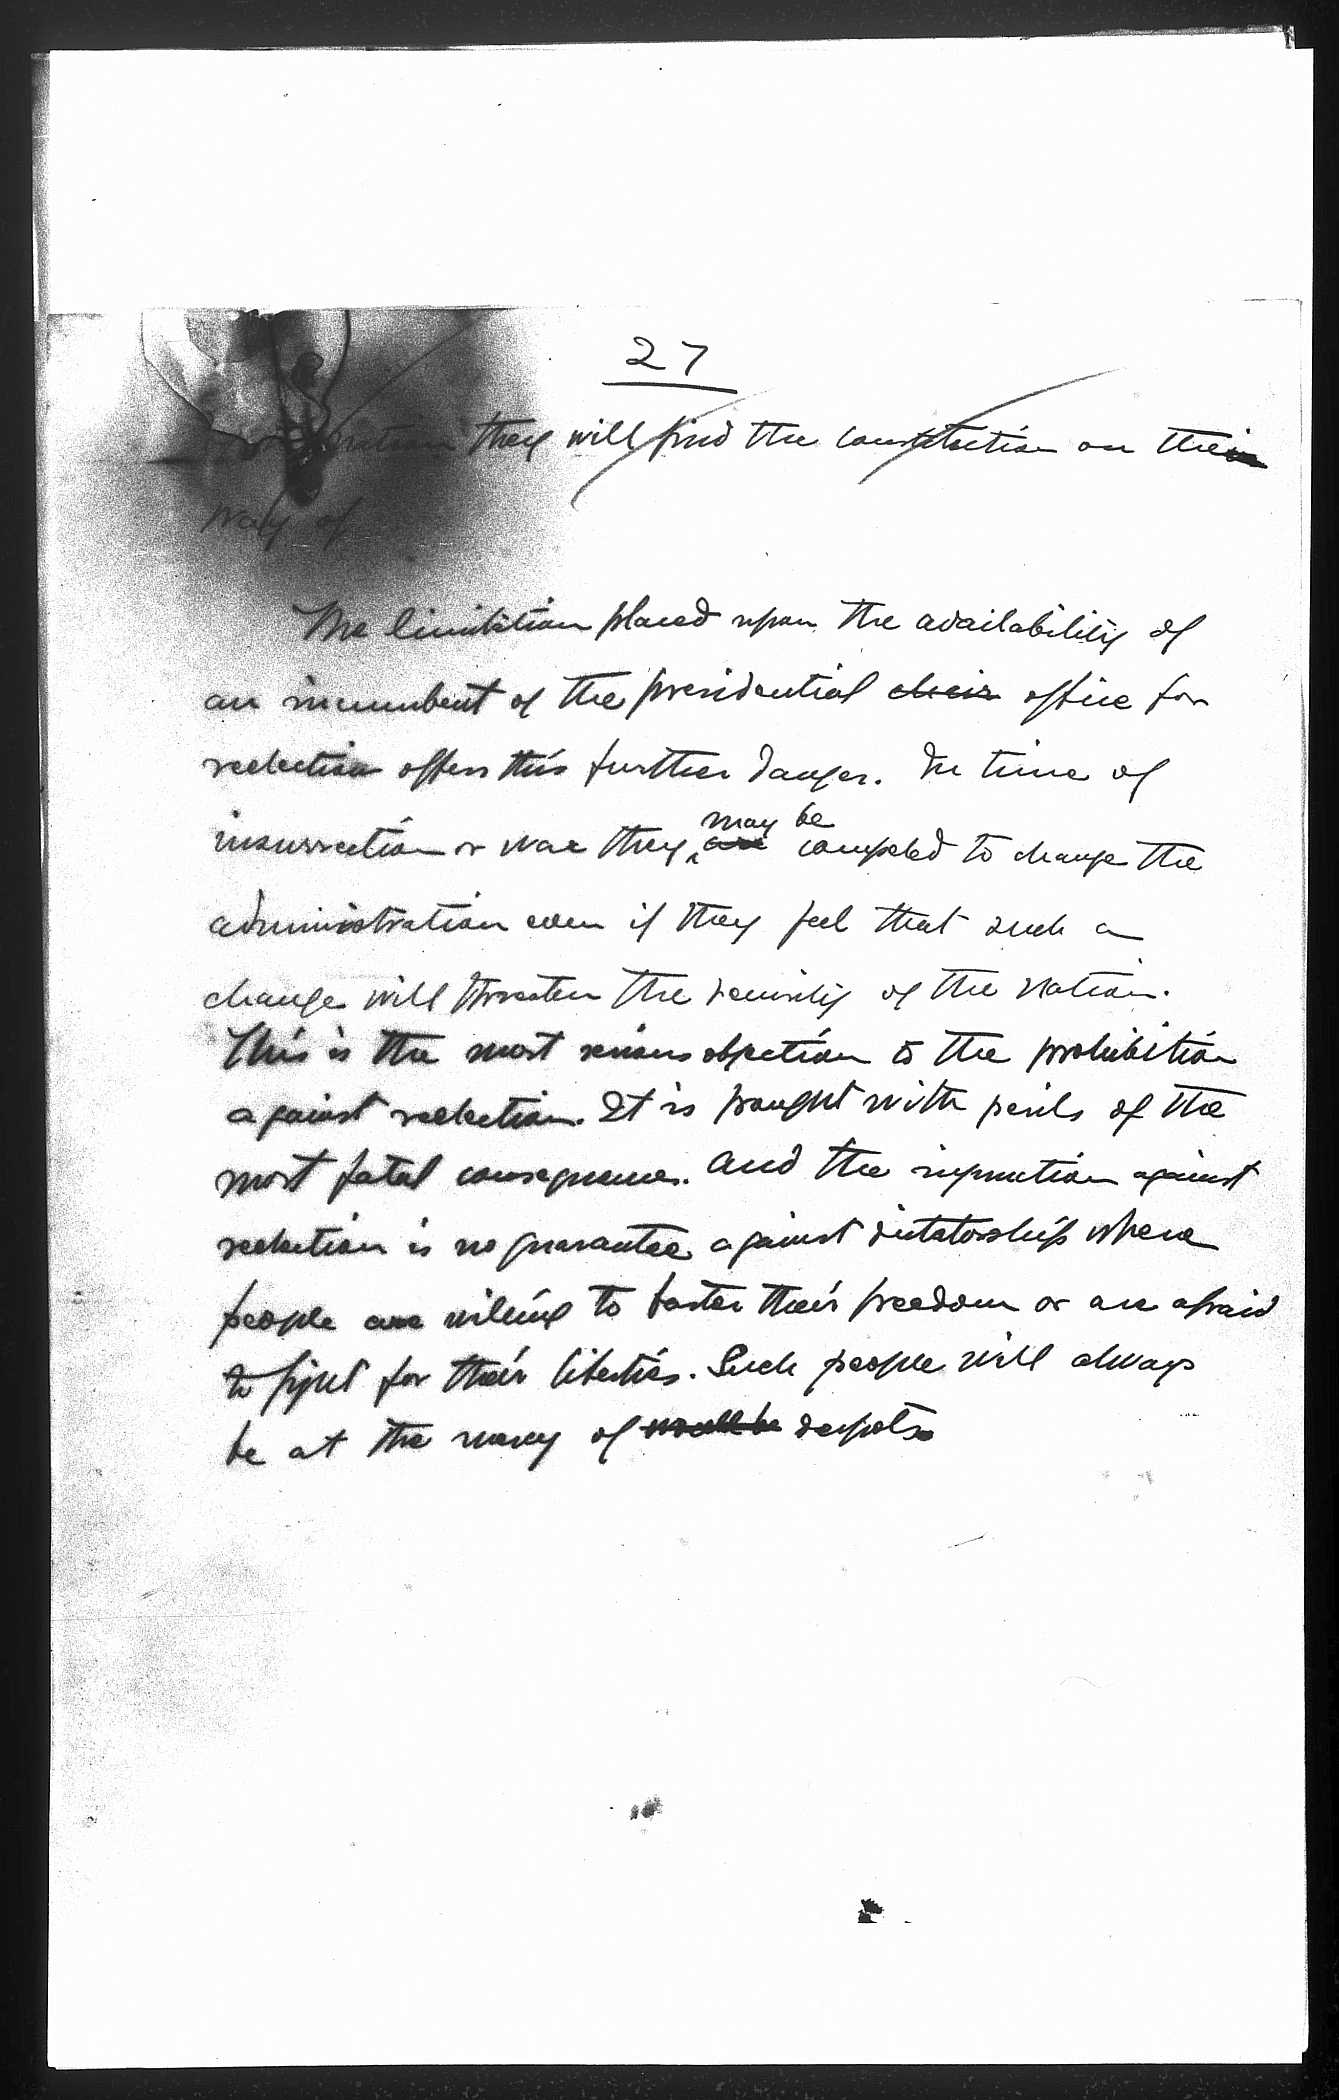 27
they will find the constitution on their
way of
The limitation placed upon the availability of
an incumbent of the presidential chair office for
reelection offers this further danger. In time of
may be
insurrection or war they are compeled to change the
administration even if they feel that such a
change will threaten the security of the nation.
This is the most serious objection to the prohibition
against reelection. It is fraught with perils of the
most fatal consequences. And the injunction against
reelection is no guarantee against dictatorship where
people are willing to barter their freedom or are afraid
to fight for their liberties. Such people will always
be at the mercy of would be despots